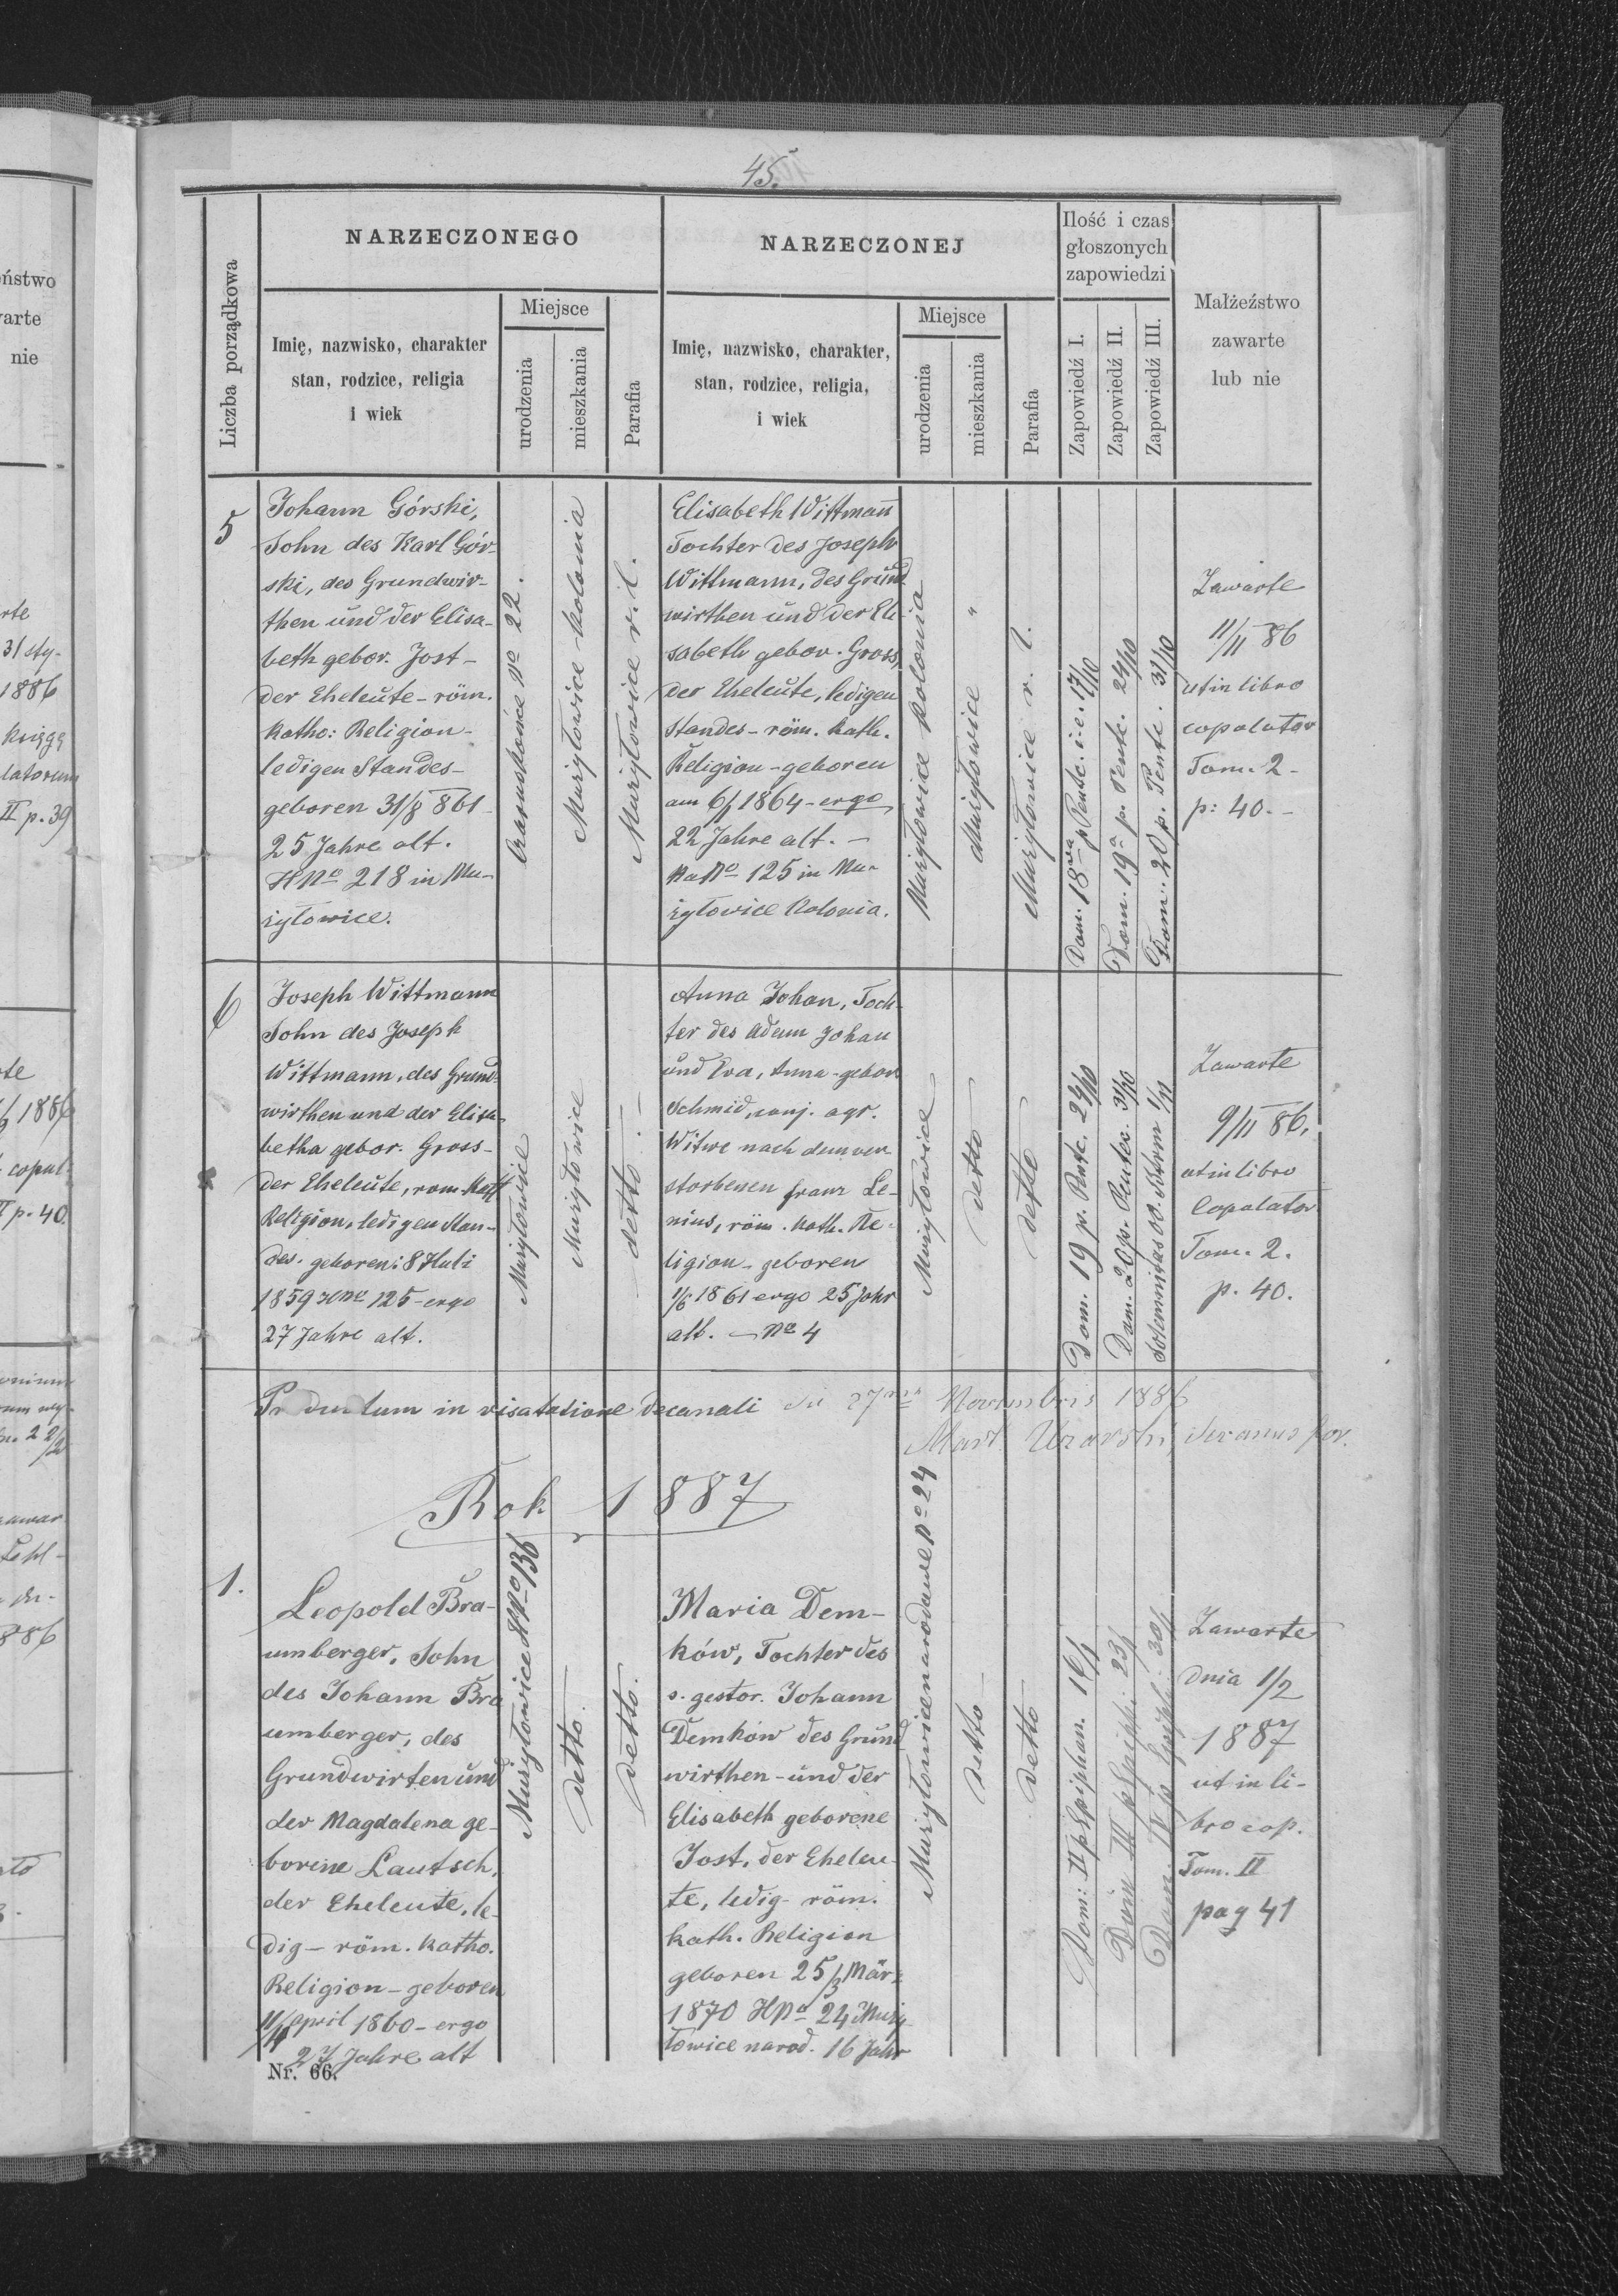 45.
NARZECZONEGO
NARZECZONEJ
Ilość i czas
głoszonych
zapowiedzi
Małżeństwo
zawarte
lub nie
Liczba porządkowa
Imię, nazwisko, charakter
stan, rodzice, religia
i wiek
Miejsce
urodzenia
mieszkania
Parafia
Imię, nazwisko, charakter,
stan, rodzice, religia,
i wiek
Miejsce
urodzenia
mieszkania
Parafia
Zapowiedź I.
Zapowiedź II.
Zapowiedź III.
5
Johann Górski,
Sohn des Karl Gór-
ski, des Grundwir-
then und der Elisa-
beth gebor. Jost-
der Eheleute - röm.
katho: Religion-
ledigen Standes-
geboren 31/8 861-
25 Jahre alt.
HNo 218 in Mu-
żyłowice.
No 22.
Mużyłowice kolonia
Mużyłowice r. l.
Elisabeth Wittmann
Tochter des Joseph
Wittmann, des Grund
wirthen und der Eli-
sabeth gebor. Gross,
der Eheleute, ledigen
Standes - röm. kath.
Religion - geboren
am 6/1 1864 - ergo
22 Jahre alt. -
No 125 in Mu-
żyłowice Kolonia.
Mużyłowice Kolonia
Mużyłowice "
Mużyłowice r. l.
Dom. 18va p Pentc. i.e. 17/10
Dom. 19a p. Pentc. 24/10
Dom. 20 p. Pentc. 31/10
Zawarte
11/11 86
ut in libro
copulator
Tom. 2-
p: 40.-
6
Joseph Wittmann
Sohn des Joseph
Wittmann, des Grund-
wirthen und der Elisa-
betha gebor. Gross-
der Eheleute, rom. Kath
Religion, ledigen Stan-
des. geboren: 8 Juli
1859 HNo 125 - ergo
27 Jahre alt.
Mużyłowice
Mużyłowice
detto
Anna Johan, Toch-
ter des Adam Johan
und Eva, Anna - gebor
Schmid, conj. agr.
Witwe nach dem ver
storbenen Franz Le-
nius, röm. kath. Re-
ligion - geboren
1/6 1861 ergo 25 Jahr
alt. - No 4
Mużyłowice
detto
detto
Dom. 19 p. Pentc. 24/10
Dom. 20 p. Pentec. 31/10
Solemnitas OO. Storm 1/11
Zawarte
9/11 86.
ut in libro
Copulator
Tom. 2.
p. 40.
in visatatione decanali die 27ma Novembris 1886
Rok 1887
1.
Leopold Bra-
umberger, Sohn
des Johann Bra
umberger, des
Grundwirten und
der Magdalena ge-
borene Lautsch,
der Eheleute, le-
dig - röm. katho.
Religion - geboren
11/4 April 1860 - ergo
27 Jahre alt
Mużyłowice HNo 136
detto.
detto.
Maria Dem-
ków, Tochter des
s. gestor. Johann
Demków des Grund
wirthen - und der
Elisabeth geborene
Jost, der Eheleu-
te, ledig - röm.
kath. Religion
geboren 25/3 März
1870 HNo 24 Muży
łowice narod. 16 Jahr
Mużyłowice narodowe No 24
detto
detto
Dom: II p Epiphan. 16/1
Dom III p Epiph: 23/1
Dom. IV p Epiph: 30/1
Zawarte
dnia 1/2
1887
ut in li-
bro cop.
Tom. II
pag 41
Nr. 66.